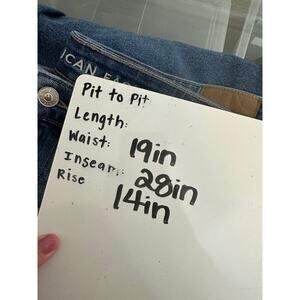 ICAN EA
Pit to Pit
Length:
Waist: 19in
Inseam: 28in
Rise 14in